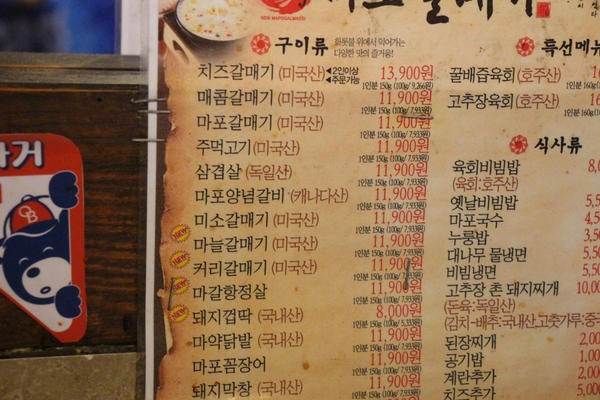 NEW MAPOGALMAEGI
구이류
화롯불 위에서 익어가는
다양한 맛의 즐거움!
치즈갈매기 (미국산) ◀2인이상 ◀주문가능 13,900원
1인분 150g (100g/ 9,266원)
매콤갈매기 (미국산) 11,900원
1인분 150g (100g/ 7,933원)
마포갈매기 (미국산) 11,900원
1인분 150g (100g/ 7,933원)
주먹고기 (미국산) 11,900원
1인분 150g (100g/ 7,933원)
삼겹살 (독일산) 11,900원
1인분 150g (100g/ 7,933원)
마포양념갈비 (캐나다산) 11,900원
1인분 150g (100g/ 7,933원)
미소갈매기 (미국산) 11,900원
1인분 150g (100g/ 7,933원)
마늘갈매기 (미국산) 11,900원
1인분 150g (100g/ 7,933원)
커리갈매기 (미국산) 11,900원
1인분 150g (100g/ 7,933원)
마갈항정살 11,900원
1인분 150g (100g/ 7,933원)
돼지껍딱 (국내산) 8,000원
1인분 150g (100g/ 5,333원)
마약닭발 (국내산) 11,900원
1인분 150g (100g/ 7,933원)
마포꼼장어 11,900원
1인분 150g (100g/ 7,933원)
돼지막창 (국내산) 11,900원
1인분 150g (100g/ 7,933원)
특선메뉴
꿀배즙육회 (호주산)
1인분 160g
고추장육회 (호주산)
1인분 160g
식사류
육회비빔밥 8,0
(육회:호주산)
옛날비빔밥 5,5
마포국수 4,5
누룽밥 3,5
대나무 물냉면 5,50
비빔냉면 5,50
고추장 촌 돼지찌개 10,00
(돈육:독일산)
(김치-배추:국내산,고춧가루:중
된장찌개 2,00
공기밥 1,00
계란추가 2,00
치즈추가 5,00